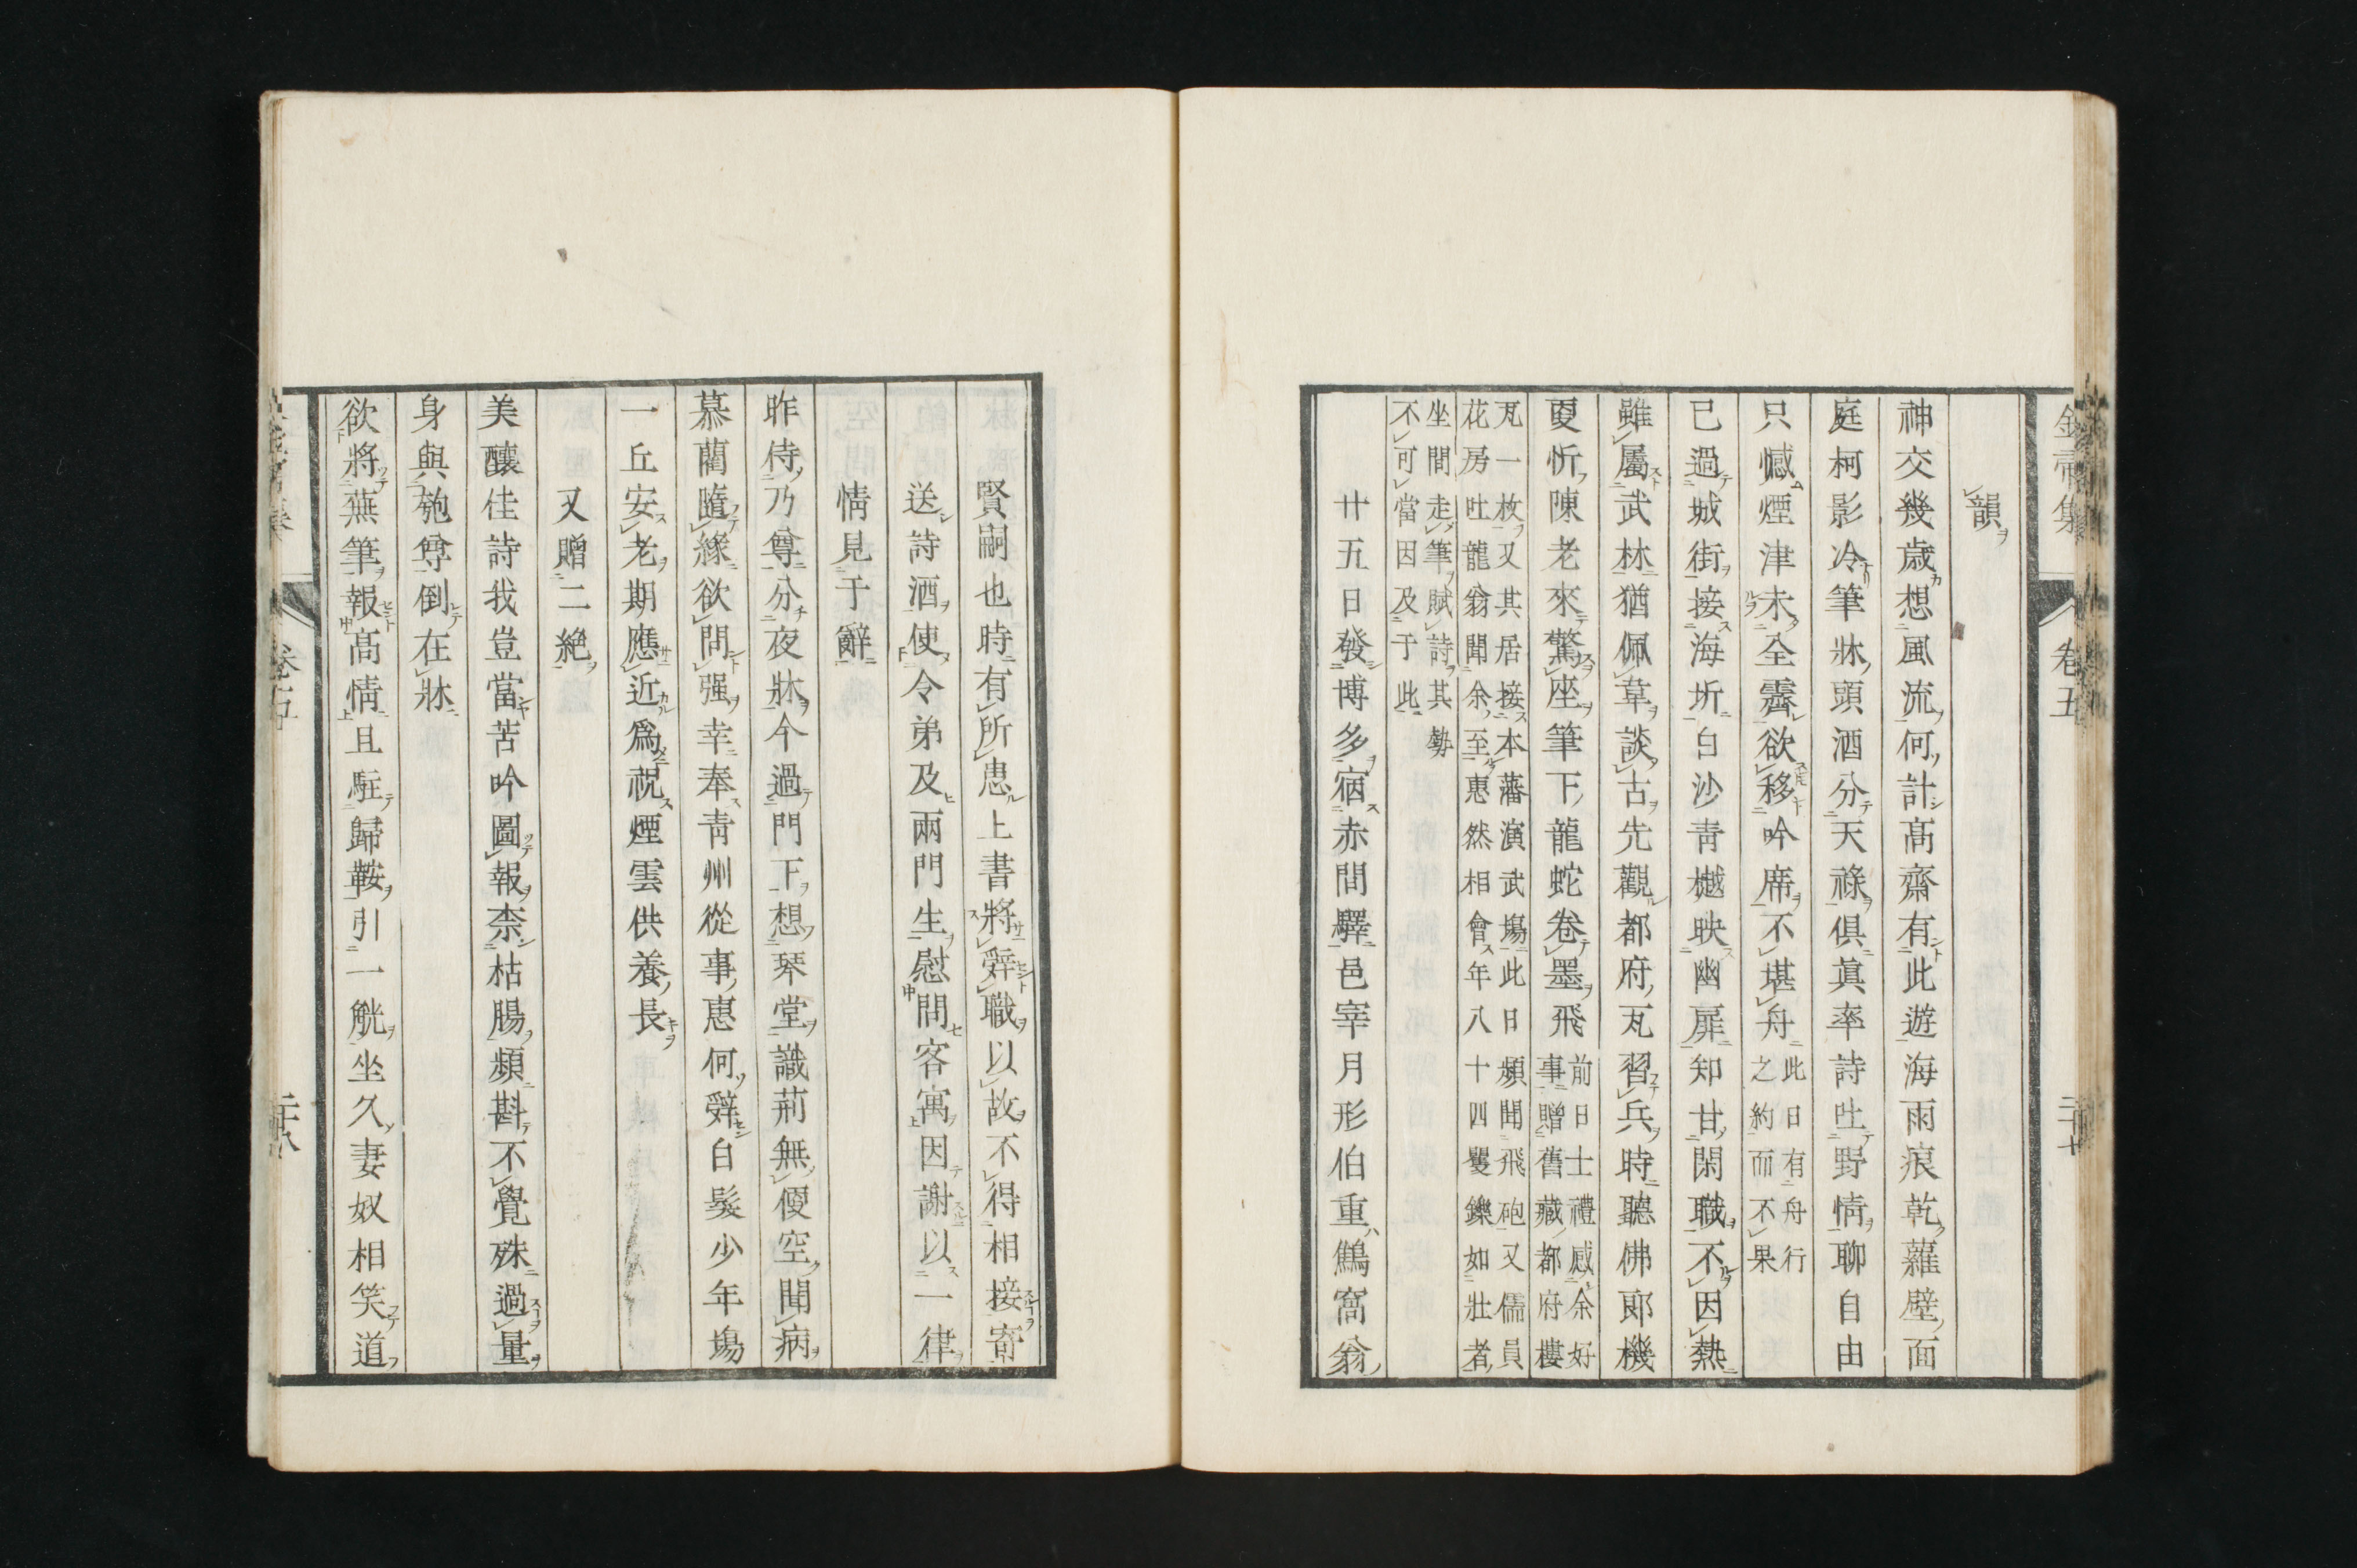 韻
神交幾歳想風流何計髙齋有此遊海雨痕乾蘿壁面
庭柯影冷筆牀頭酒分天祿俱眞率詩吐野情聊自由
只憾煙津未全霽欲移吟席不堪舟
此日有舟行
之約而不果
已過城街接海圻白沙靑樾映幽扉知甘閑職不因熱
雖屬武林猶佩韋談古先觀都府瓦習兵時聽佛郎機
更忻陳老來驚座筆下龍蛇卷墨飛
前日士禮惑余好
事贈舊藏都府樓
瓦一枚又其居接本藩演武場此日頻聞飛砲又儒員
花房吐龍翁聞余至惠然相會年八十四矍鑠如壯者
坐間走筆賦詩其勢
不可當因及于此
廿五日發博多宿赤間驛邑宰月形伯重鷦窩翁
賢嗣也時有所患上書將辭職以故不得相接寄
送詩酒使令弟及兩門生慰問客寓因謝以一律
情見于辭
昨侍乃尊分夜牀今過門下想琴堂識荊無便空聞病
慕藺隨緣欲問强幸奉靑州從事惠何辭白髮少年場
一丘安老期應近爲祝煙雲供養長
又贈二絶
美釀佳詩我豈當苦吟圖報柰枯腸頻斟不覺殊過量
身與匏尊倒在牀
欲將蕪筆報髙情且駐歸鞍引一觥坐久妻奴相笑道
卷五
二十七